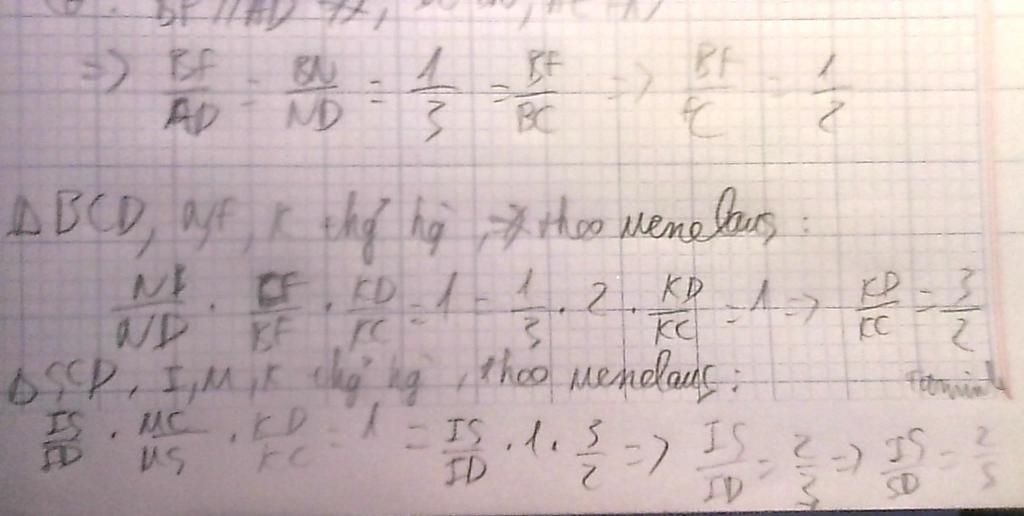 BF // AD
=> BF/AD = BN/ND = 1/3 = BF/BC => BF/FC = 1/2
Δ BCD, N, F, K thg̉ hg̀, => theo Menelaus :
NB/ND . CF/BF . KD/KC = 1 = 1/3 . 2 . KD/KC = 1 => KD/KC = 3/2
Δ SCD, I, M, K thg̉ hg̀, theo Menelaus :
IS/ID . MC/MS . KD/KC = 1 = IS/ID . 1 . 3/2 => IS/ID = 2/3 => IS/SD = 2/5